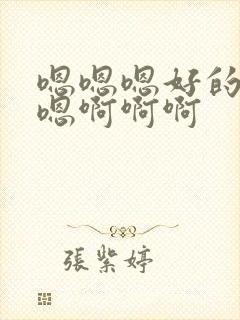 嗯嗯嗯好的
嗯啊啊啊
張紫婷